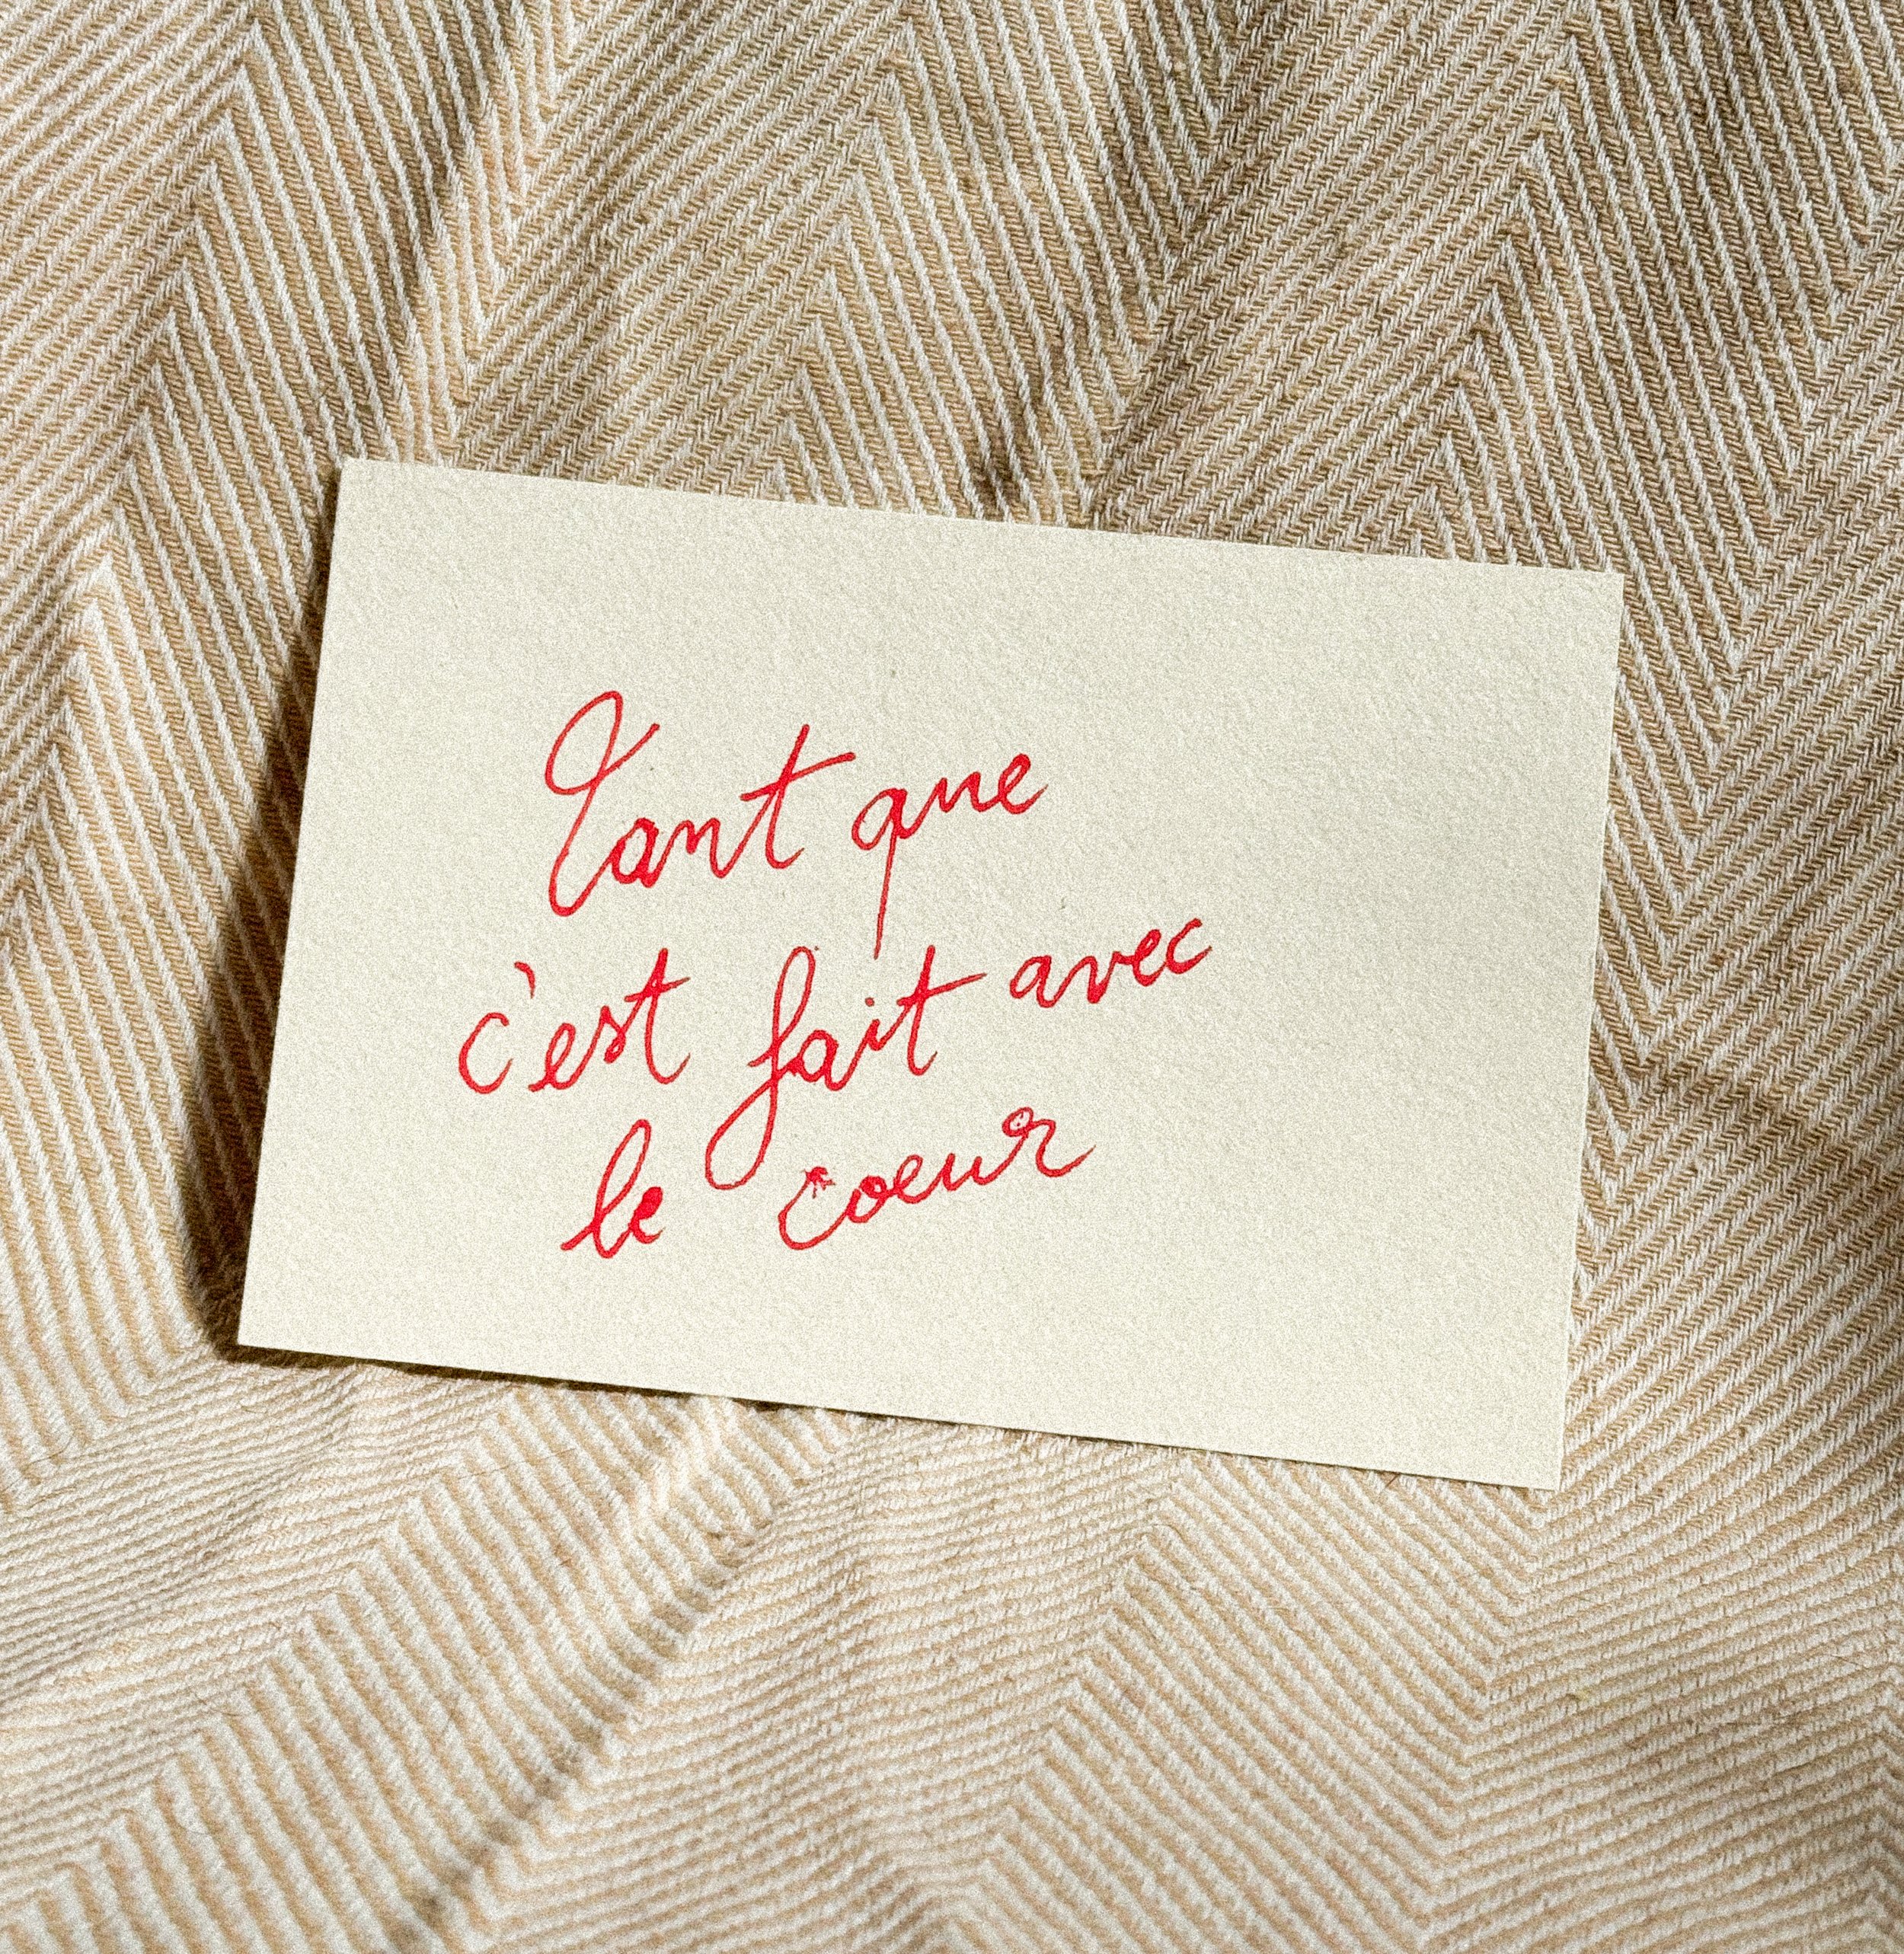 Tant que
c'est fait avec
le coeur